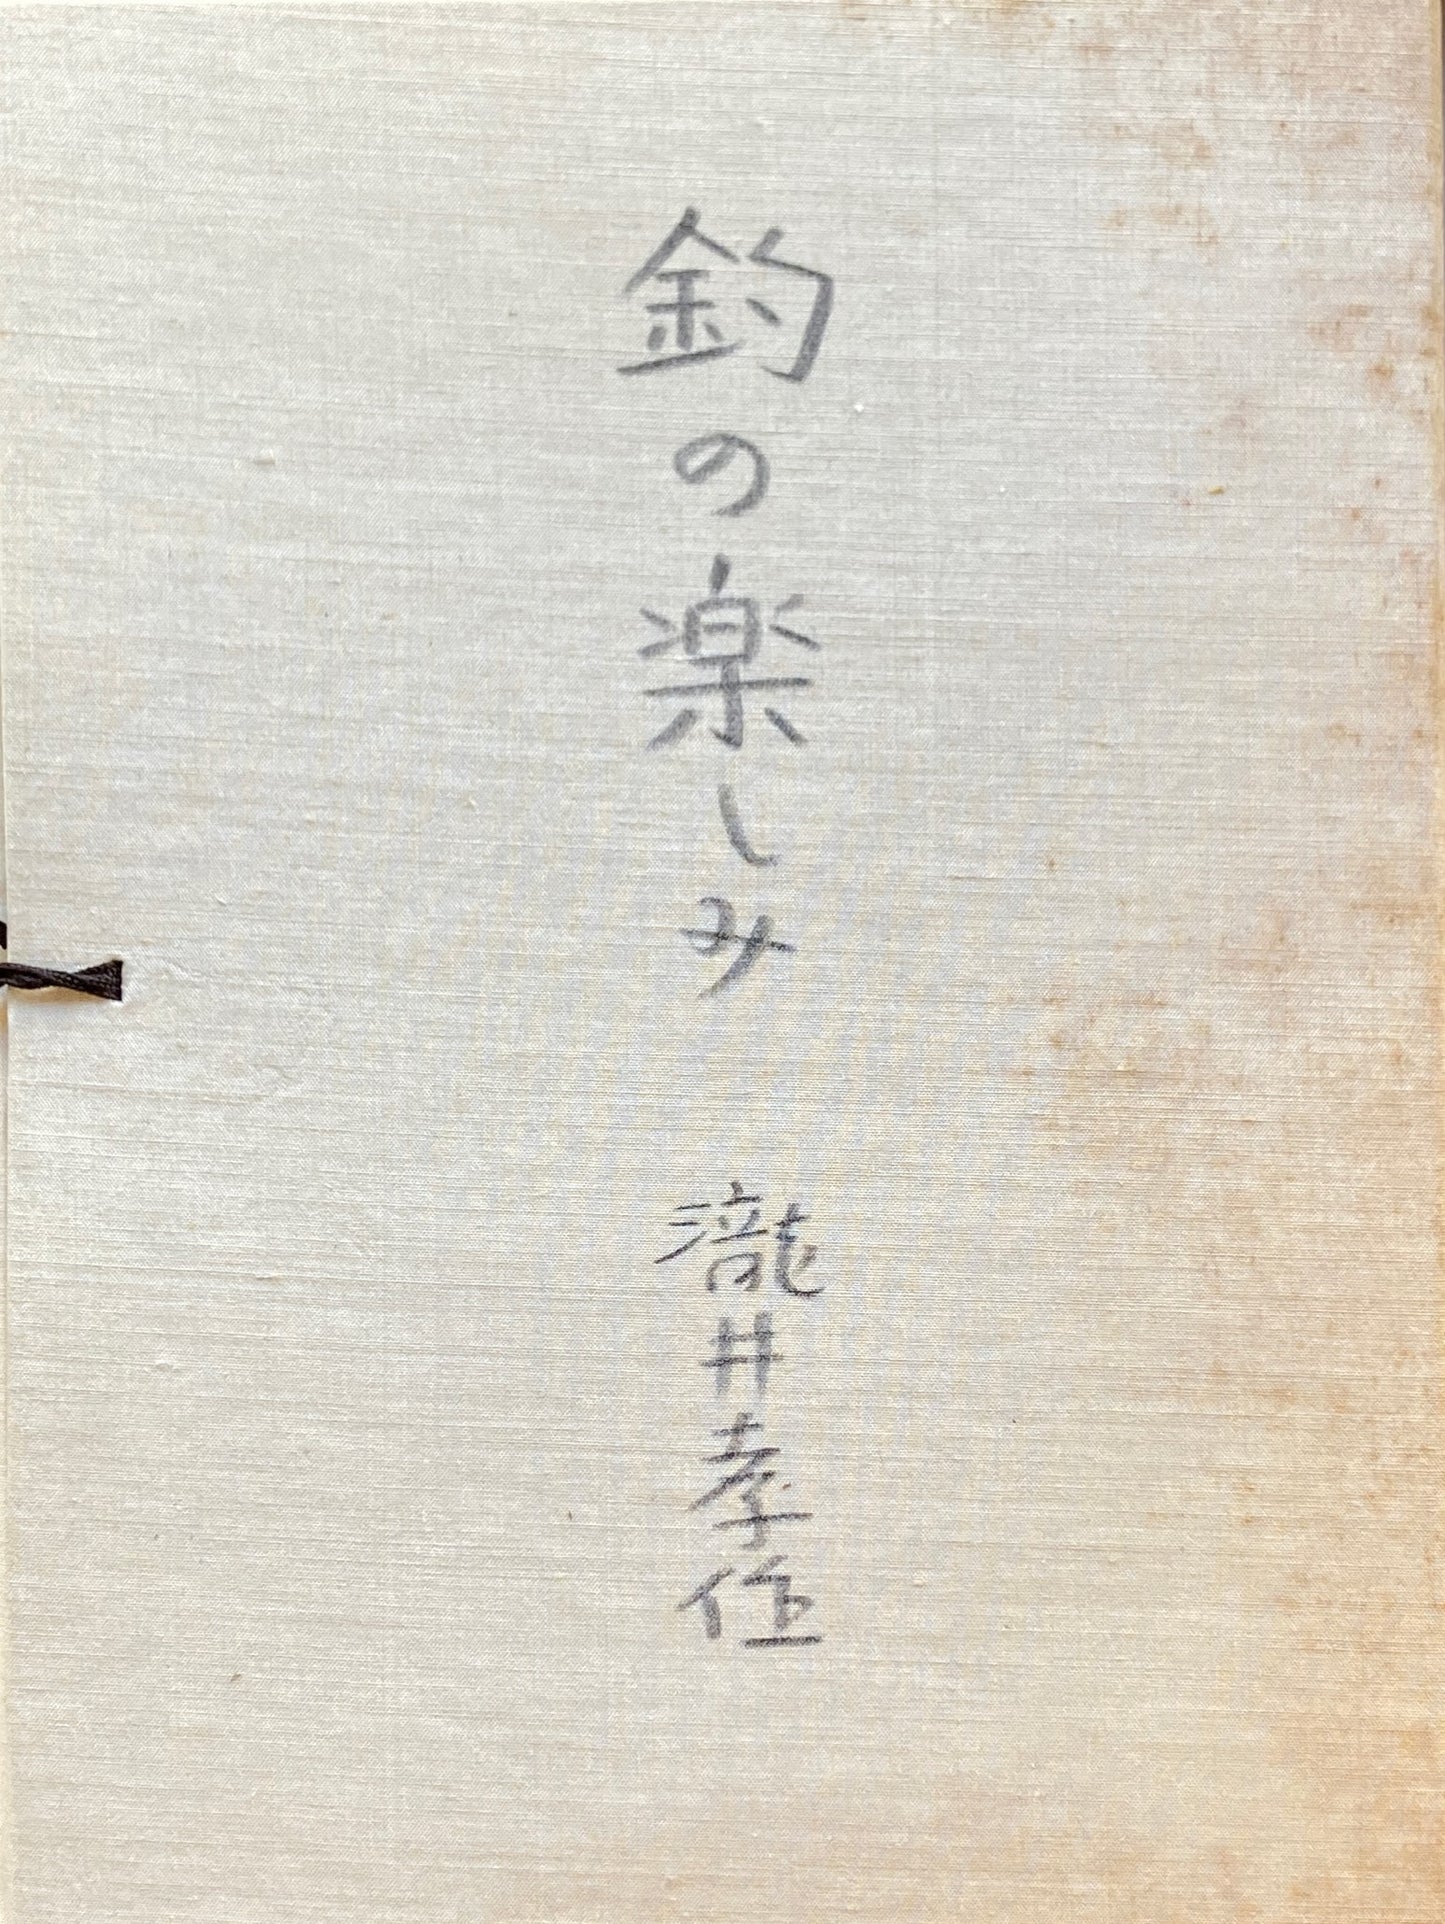 釣の楽しみ
瀧井孝作